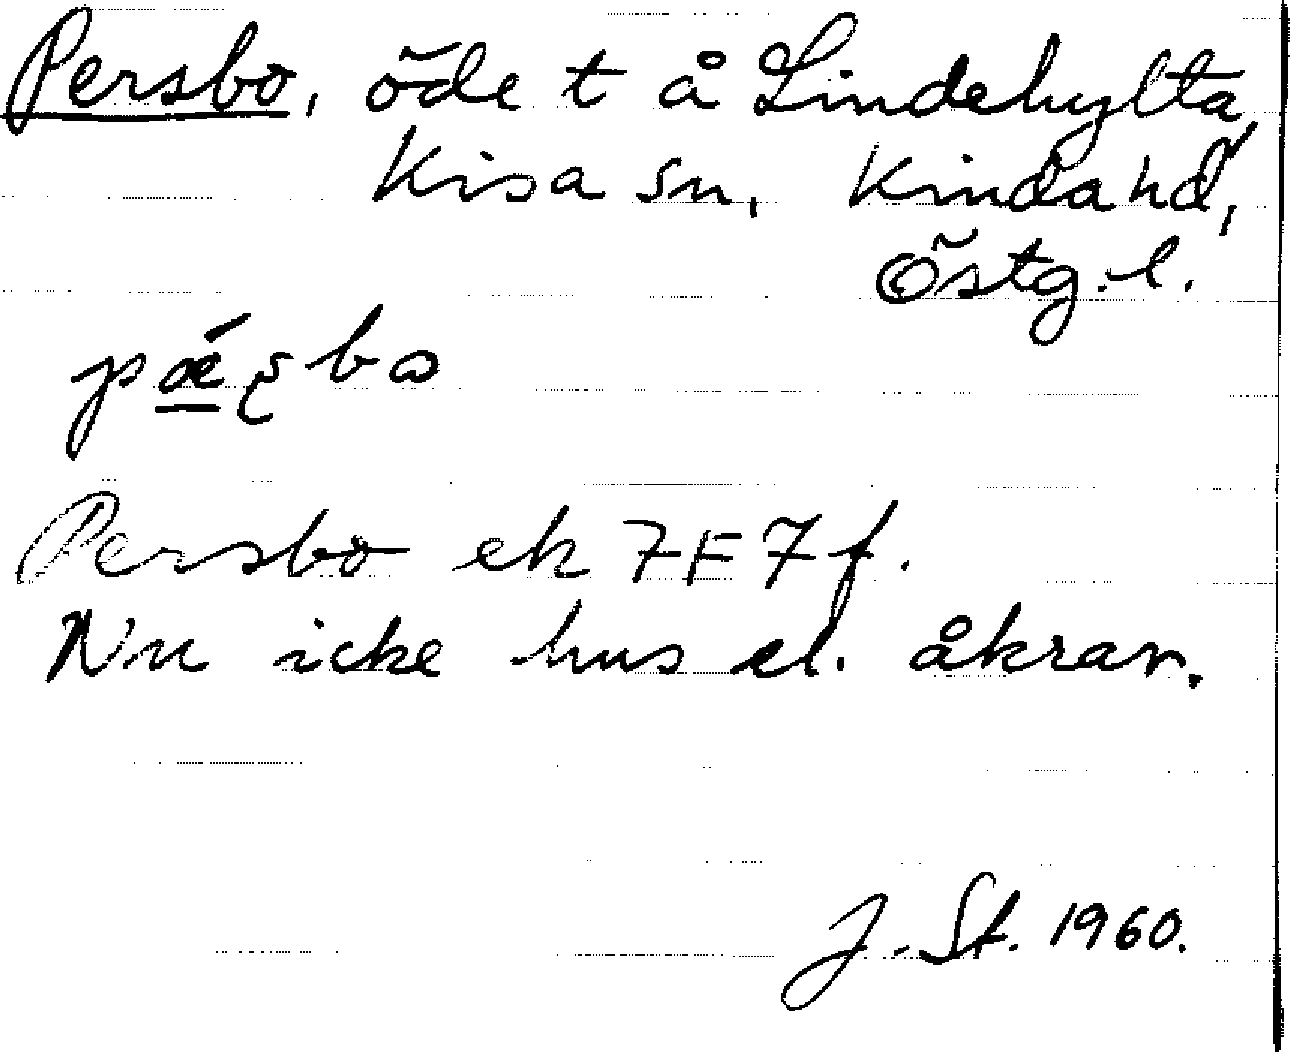 Persbo, öde t å Lindehylta,
Kisa sn, Kinda hd,
Östg. l.
pǽʂbo
Persbo ek 7F7f.
Nu icke hus el. åkrar.
J. St. 1960.